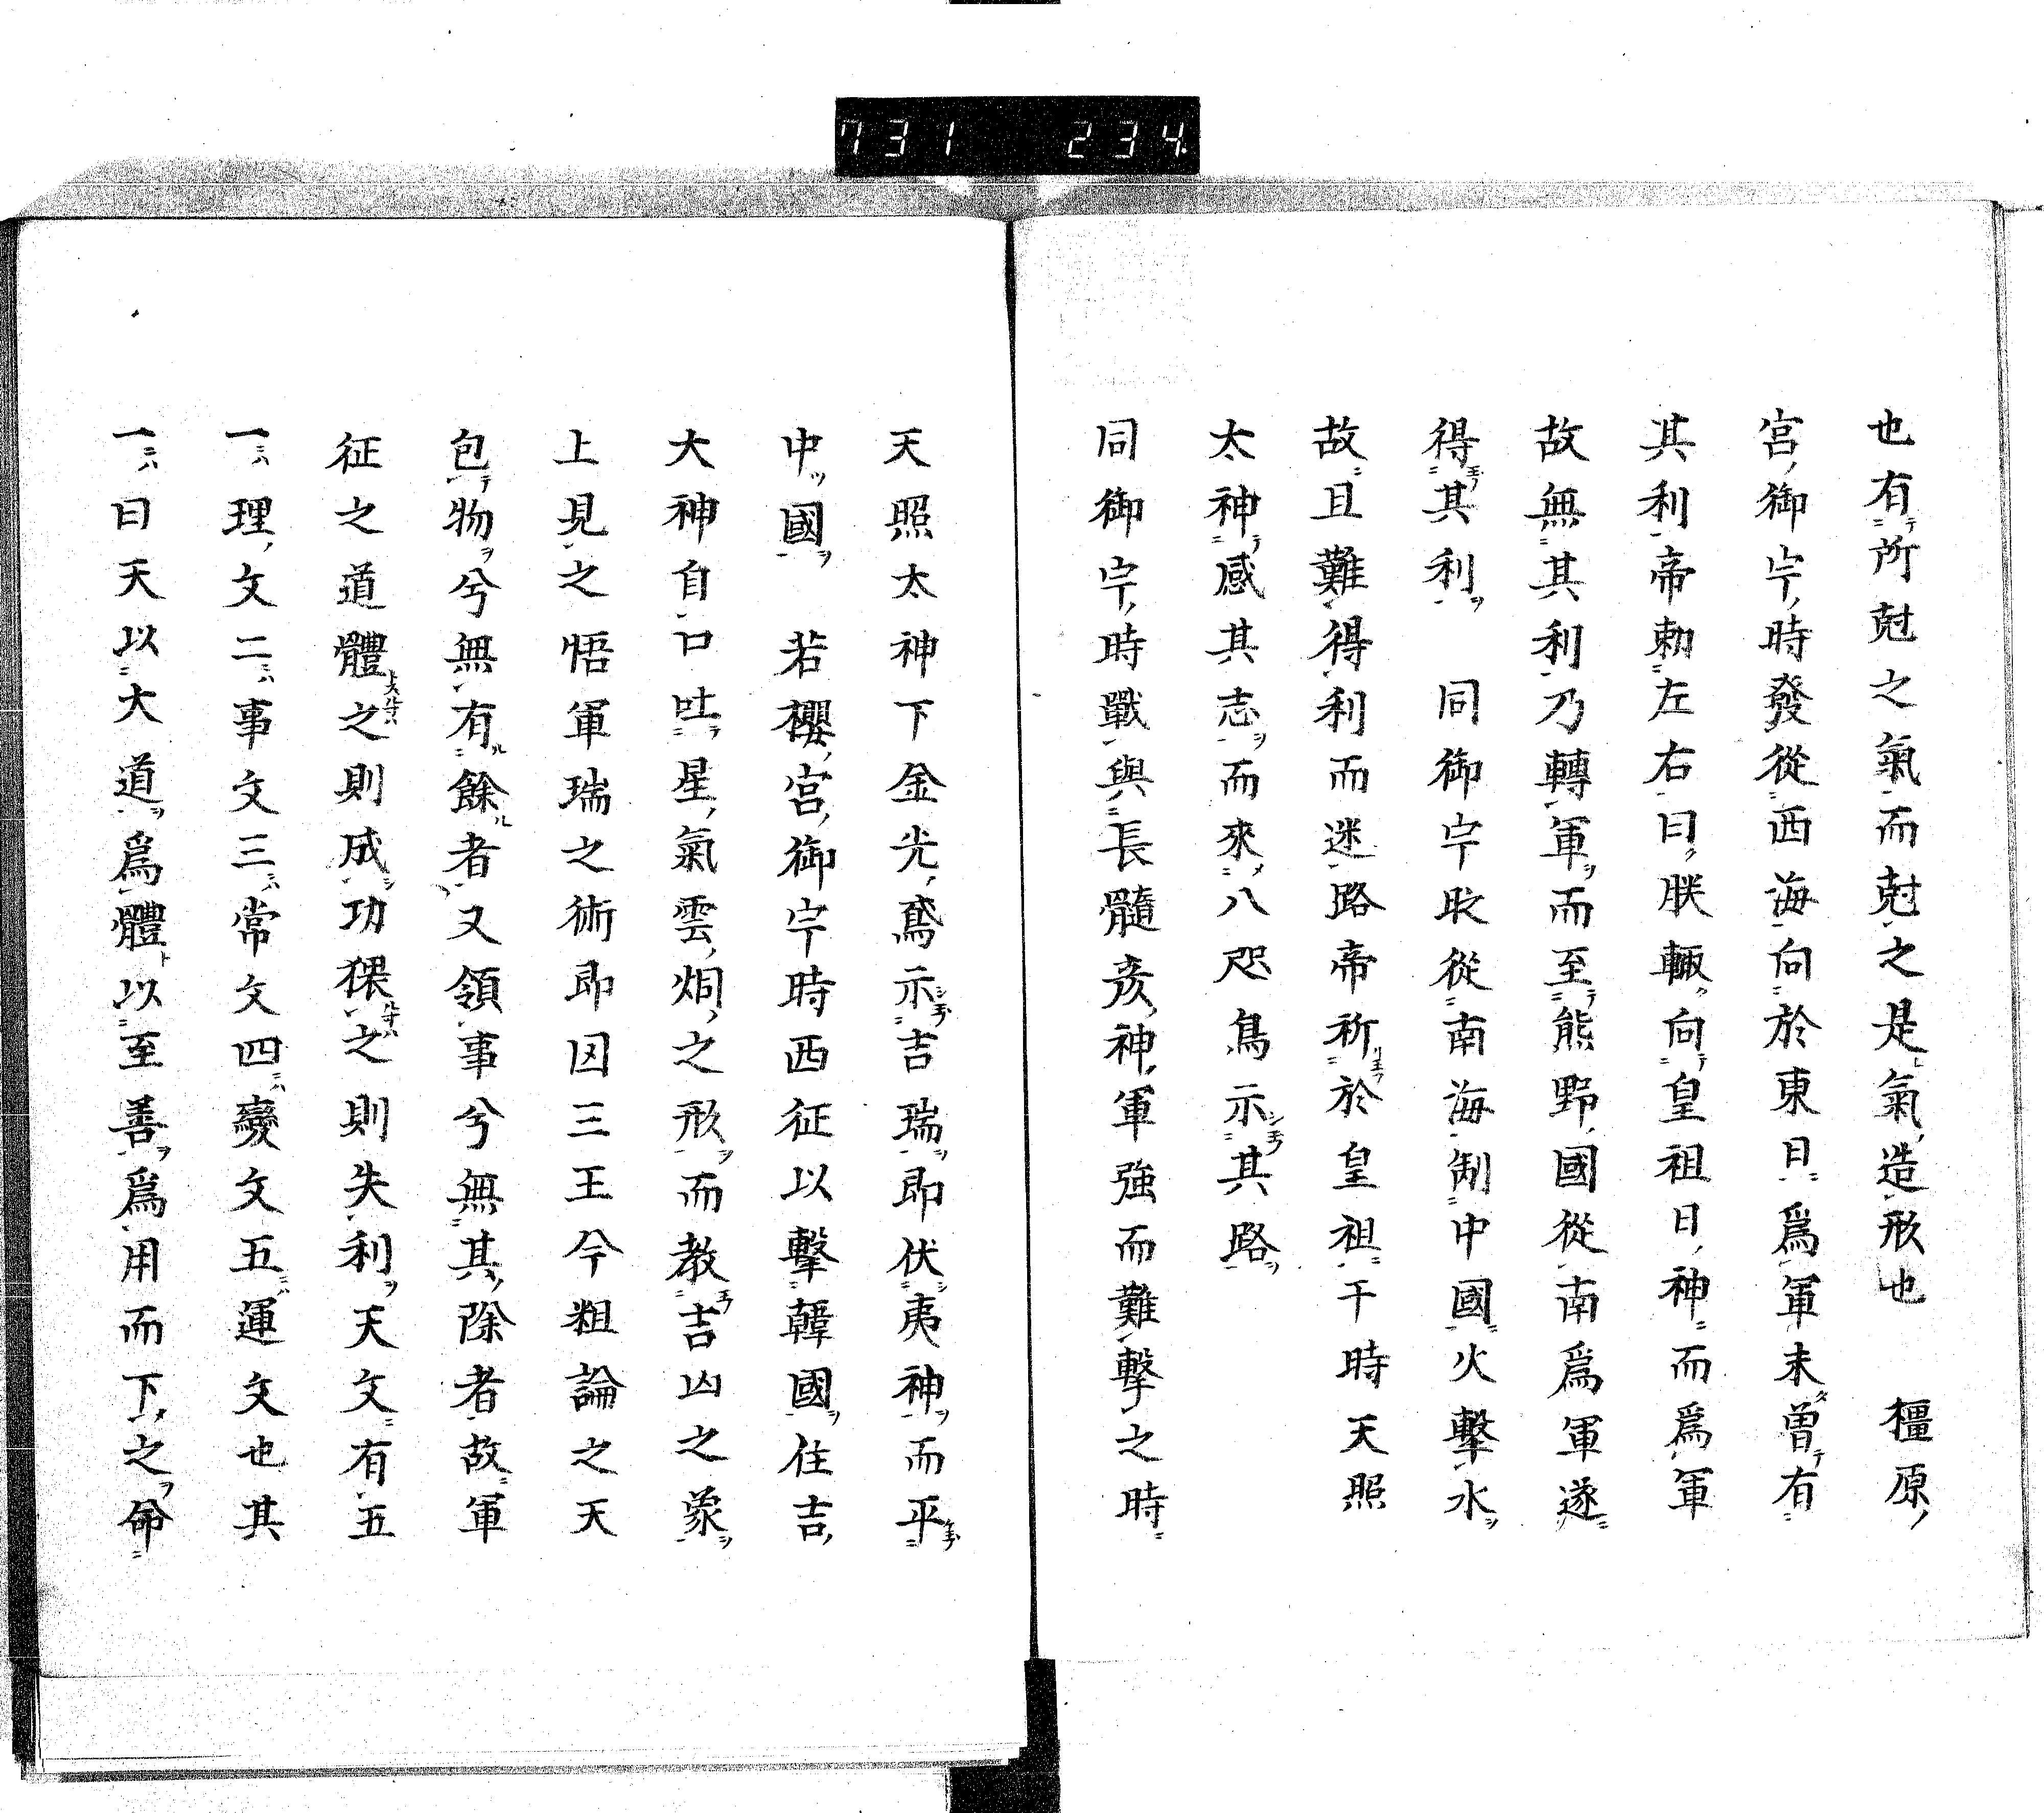 731 234
也有所尅之氣而尅之是氣造形也 橿原
宮御宇時發從西海向於東日爲軍未曽有
其利帝勅左右曰朕輙向皇祖日神而爲軍
故無其利乃轉軍而至熊野國從南爲軍遂
得其利 同御宇敗從南海制中國火擊水
故且難得利而迷路帝祈於皇祖于時天照
太神感其志而來八咫鳥示其路
同御宇時戰與長髓彦神軍強而難擊之時
天照太神下金光鳶示吉瑞即伏夷神而平
中國 若櫻宮御宇時西征以擊韓國住吉
大神自口吐星氣雲烟之形而教吉凶之象
上見之悟軍瑞之術即因三王今粗論之天
包物兮無有餘者又領事兮無其除者故軍
征之道體之則成功猽之則失利天文有五
一理文二事文三常文四變文五運文也其
一曰天以大道爲體以至善爲用而下之命